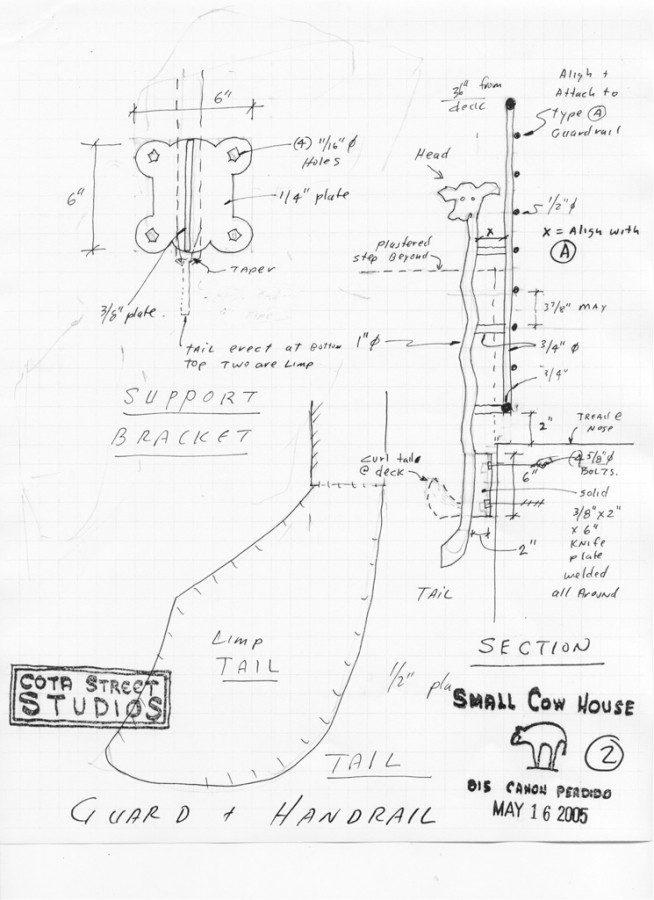 6"
6"
(4) 11/16" ø
Holes
1/4" plate
TAPER
3/8" plate.
TAIL erect at Bottom
top Two are Limp
SUPPORT
BRACKET
36" from
deck
Align +
Attach to
type A
Guardrail
Head
1/2" ø
X = Align with
A
x
plastered
step Beyond
3 7/8" MAX
1" ø
3/4" ø
3/4"
2"
TREAD
Nose
curl tail
@ deck
(4) 5/8" ø
BOLTS.
6"
solid
3/8" x 2"
x 6"
Knife
plate
welded
all Around
2"
TAIL
SECTION
Limp
TAIL
1/2" pla
TAIL
COTA STREET
STUDIOS
SMALL COW HOUSE
2
815 CANON PERDIDO
MAY 16 2005
GUARD + HANDRAIL